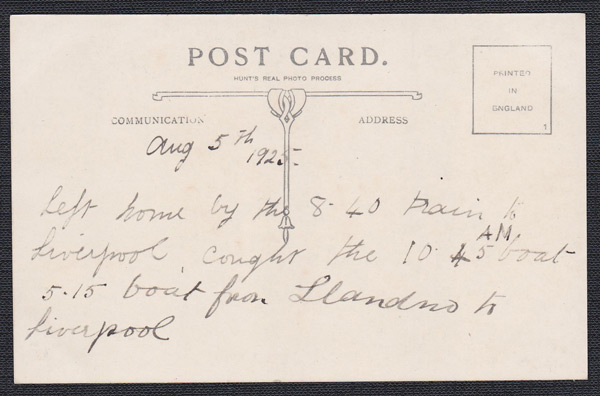 POST CARD.
HUNT'S REAL PHOTO PROCESS
COMMUNICATION
ADDRESS
PRINTED
IN
ENGLAND
1
Aug 5th
1925.
Left home by the 8-40 train to
Liverpool, caught the 10.45 AM boat
5-15 boat from Llandno to
Liverpool